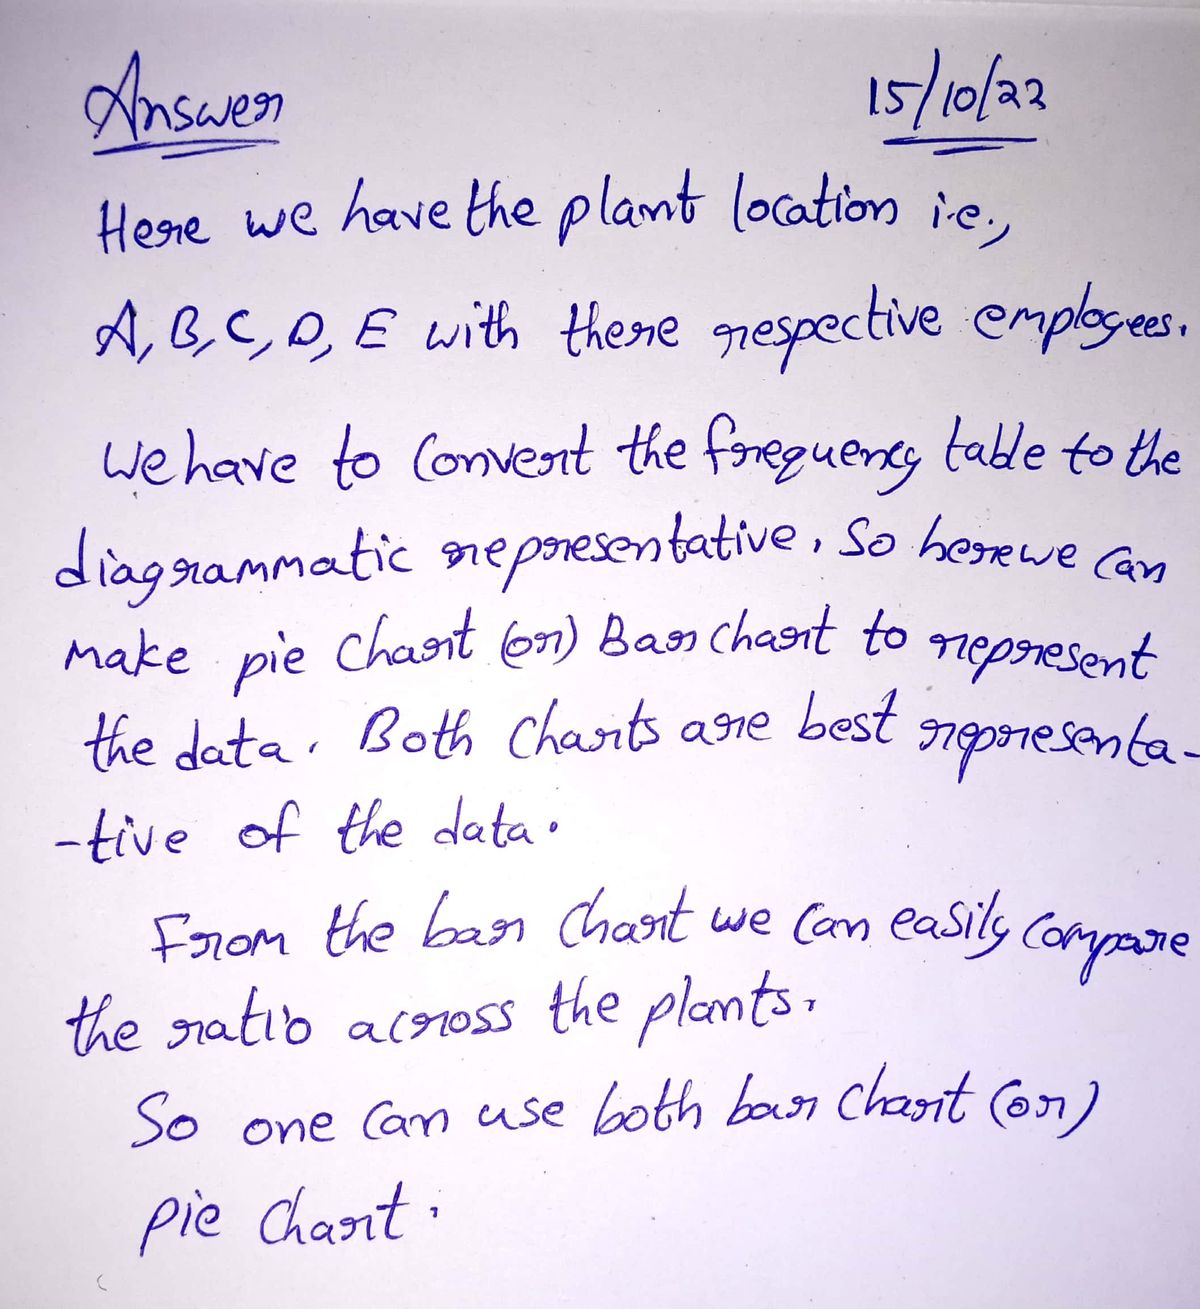 Answer 15/10/22
Here we have the plant location i.e.,
A, B, C, D, E with there respective employees.
We have to Convert the frequency table to the
diagrammatic representative, So here we Can
Make pie Chart (or) Bar Chart to represent
the data. Both Charts are best representa-
-tive of the data.
From the bar Chart we Can easily Compare
the ratio across the plants.
So one Can use both bar Chart (or)
pie Chart.